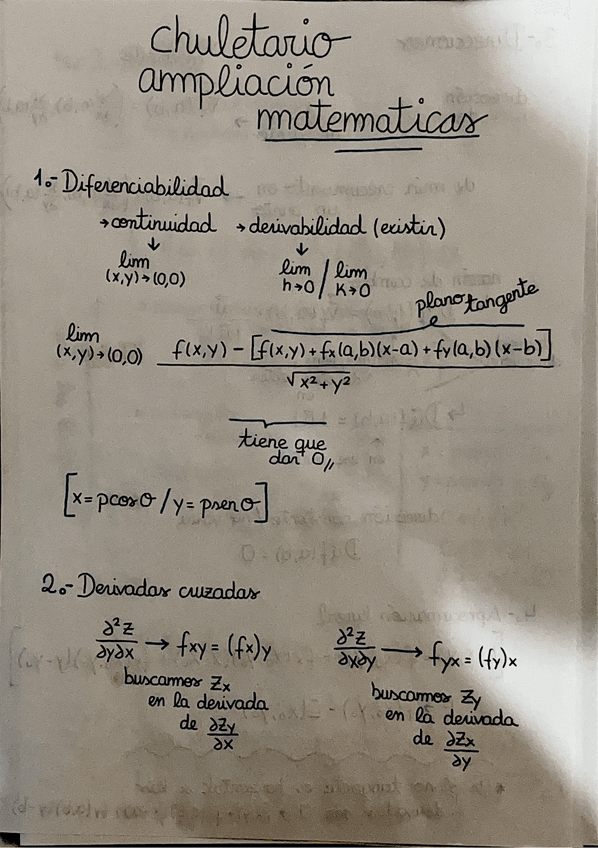 chuletario
ampliación
matematicas
1.- Diferenciabilidad
→ continuidad → derivabilidad (existir)
↓ ↓
lim (x,y)→(0,0) lim h→0 / lim k→0
plano tangente
lim (x,y)→(0,0) f(x,y) - [f(x,y) + fx(a,b)(x-a) + fy(a,b)(x-b)]
√x²+y²
tiene que
dar 0,,
[x = ρcosθ / y = ρsenθ]
2.- Derivadas cruzadas
∂²z/∂y∂x → fxy = (fx)y ∂²z/∂x∂y → fyx = (fy)x
buscamos Zx
en la derivada
de ∂Zy/∂x
buscamos Zy
en la derivada
de ∂Zx/∂y